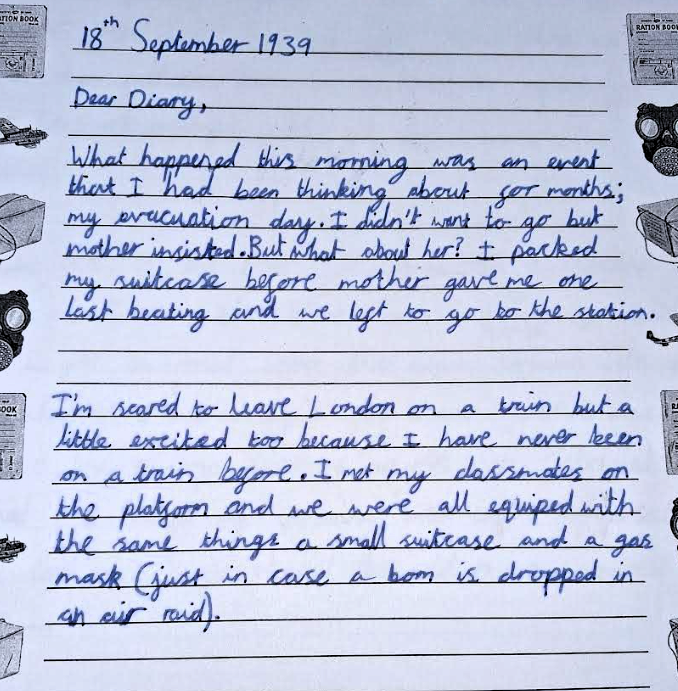 RATION BOOK
RATION BOOK
18th September 1939
Dear Diary,
What happened this morning was an event
that I had been thinking about for months;
my evacuation day. I didn't want to go but
mother insisted. But what about her? I packed
my suitcase before mother gave me one
last beating and we left to go to the station.
I'm scared to leave London on a train but a
little excited too because I have never been
on a train before. I met my classmates on
the platform and we were all equiped with
the same things a small suitcase and a gas
mask (just in case a bom is dropped in
an air raid).
BOOK